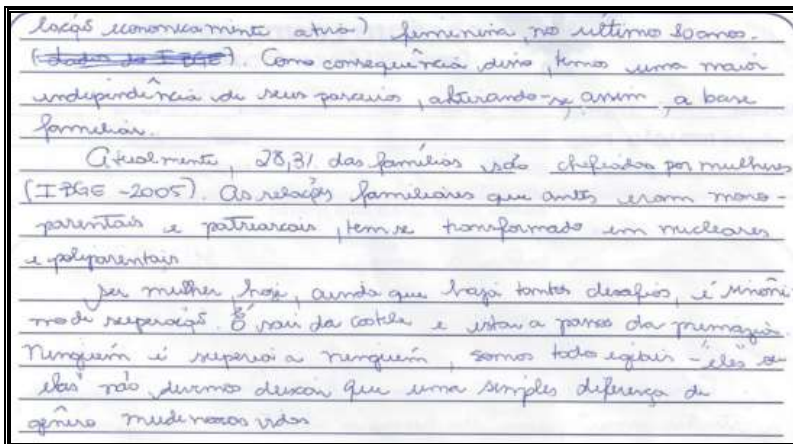 lação economicamente ativa) feminina, no último 80 anos.
(dados do IBGE). Como consequência disso, temos uma maior
independência de seus parceiros, alterando-se, assim, a base
familiar.
Atualmente, 28,3% das famílias são chefiadas por mulheres
(IBGE -2005). As relações familiares que antes eram mono-
parentais e patriarcais, tem se transformado em nucleares
e poliparentais
Ser mulher, hoje, ainda que haja tantos desafios, é sinôni-
mo de superação. É sair da costela e estar a passos da primazia.
Ninguém é superior a ninguém, somos todo iguais - "eles" ou
elas" não devemos deixar que uma simples diferença de
gênero mude nossas vidas